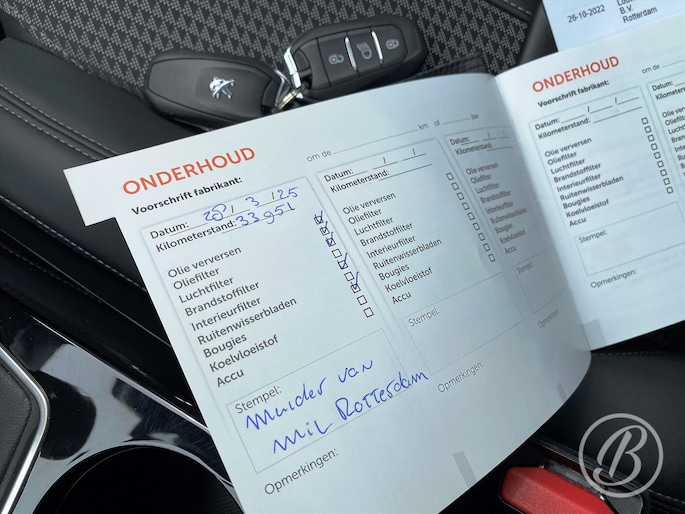 26-10-2022
B.V.
Rotterdam
ONDERHOUD
Voorschrift fabrikant:
Datum: 28 / 3 / 25
Kilometerstand: 33951
Olie verversen
Oliefilter
Luchtfilter
Brandstoffilter
Interieurfilter
Ruitenwisserbladen
Bougies
Koelvloeistof
Accu
Stempel:
Mulder van
Mil Rotterdam
Opmerkingen:
om de km of jaar
Datum: / /
Kilometerstand:
Olie verversen
Oliefilter
Luchtfilter
Brandstoffilter
Interieurfilter
Ruitenwisserbladen
Bougies
Koelvloeistof
Accu
Stempel:
Opmerkingen:
Datum: / /
Kilometerstand:
Olie verversen
Oliefilter
Luchtfilter
Brandstoffilter
Interieurfilter
Ruitenwisserbladen
Bougies
Koelvloeistof
Accu
Stempel:
Opmerkingen:
ONDERHOUD
Voorschrift fabrikant:
om de
Datum: / /
Kilometerstand:
Olie verversen
Oliefilter
Luchtfilter
Brandstoffilter
Interieurfilter
Ruitenwisserbladen
Bougies
Koelvloeistof
Accu
Stempel:
Opmerkingen:
B